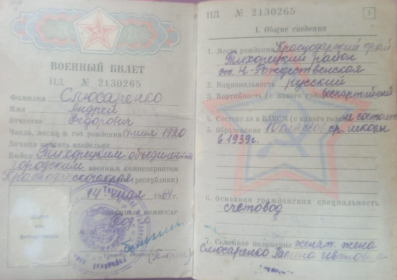 ВОЕННЫЙ БИЛЕТ
НД № 2130265
Фамилия Слюсаренко
Имя Андрей
Отчество Федорович
Число, месяц и год рождения 1920
Личная подпись владельца
Выдан Тихорецким объединенным
городским военным комиссариатом
14 мая 1964
НД № 2130265
1
I. Общие сведения
1. Место рождения Краснодарский край
Тихорецкий район
ст. Н-Рождественская
2. Национальность русский
3. Партийность (с какого года) беспартийный
4. Состоит ли в ВЛКСМ (с какого года) не состоит
5. Образование 10 кл. ср. школы
в 1939г.
6. Основная гражданская специальность
счетовод
7. Семейное положение женат жена
Слюсаренко